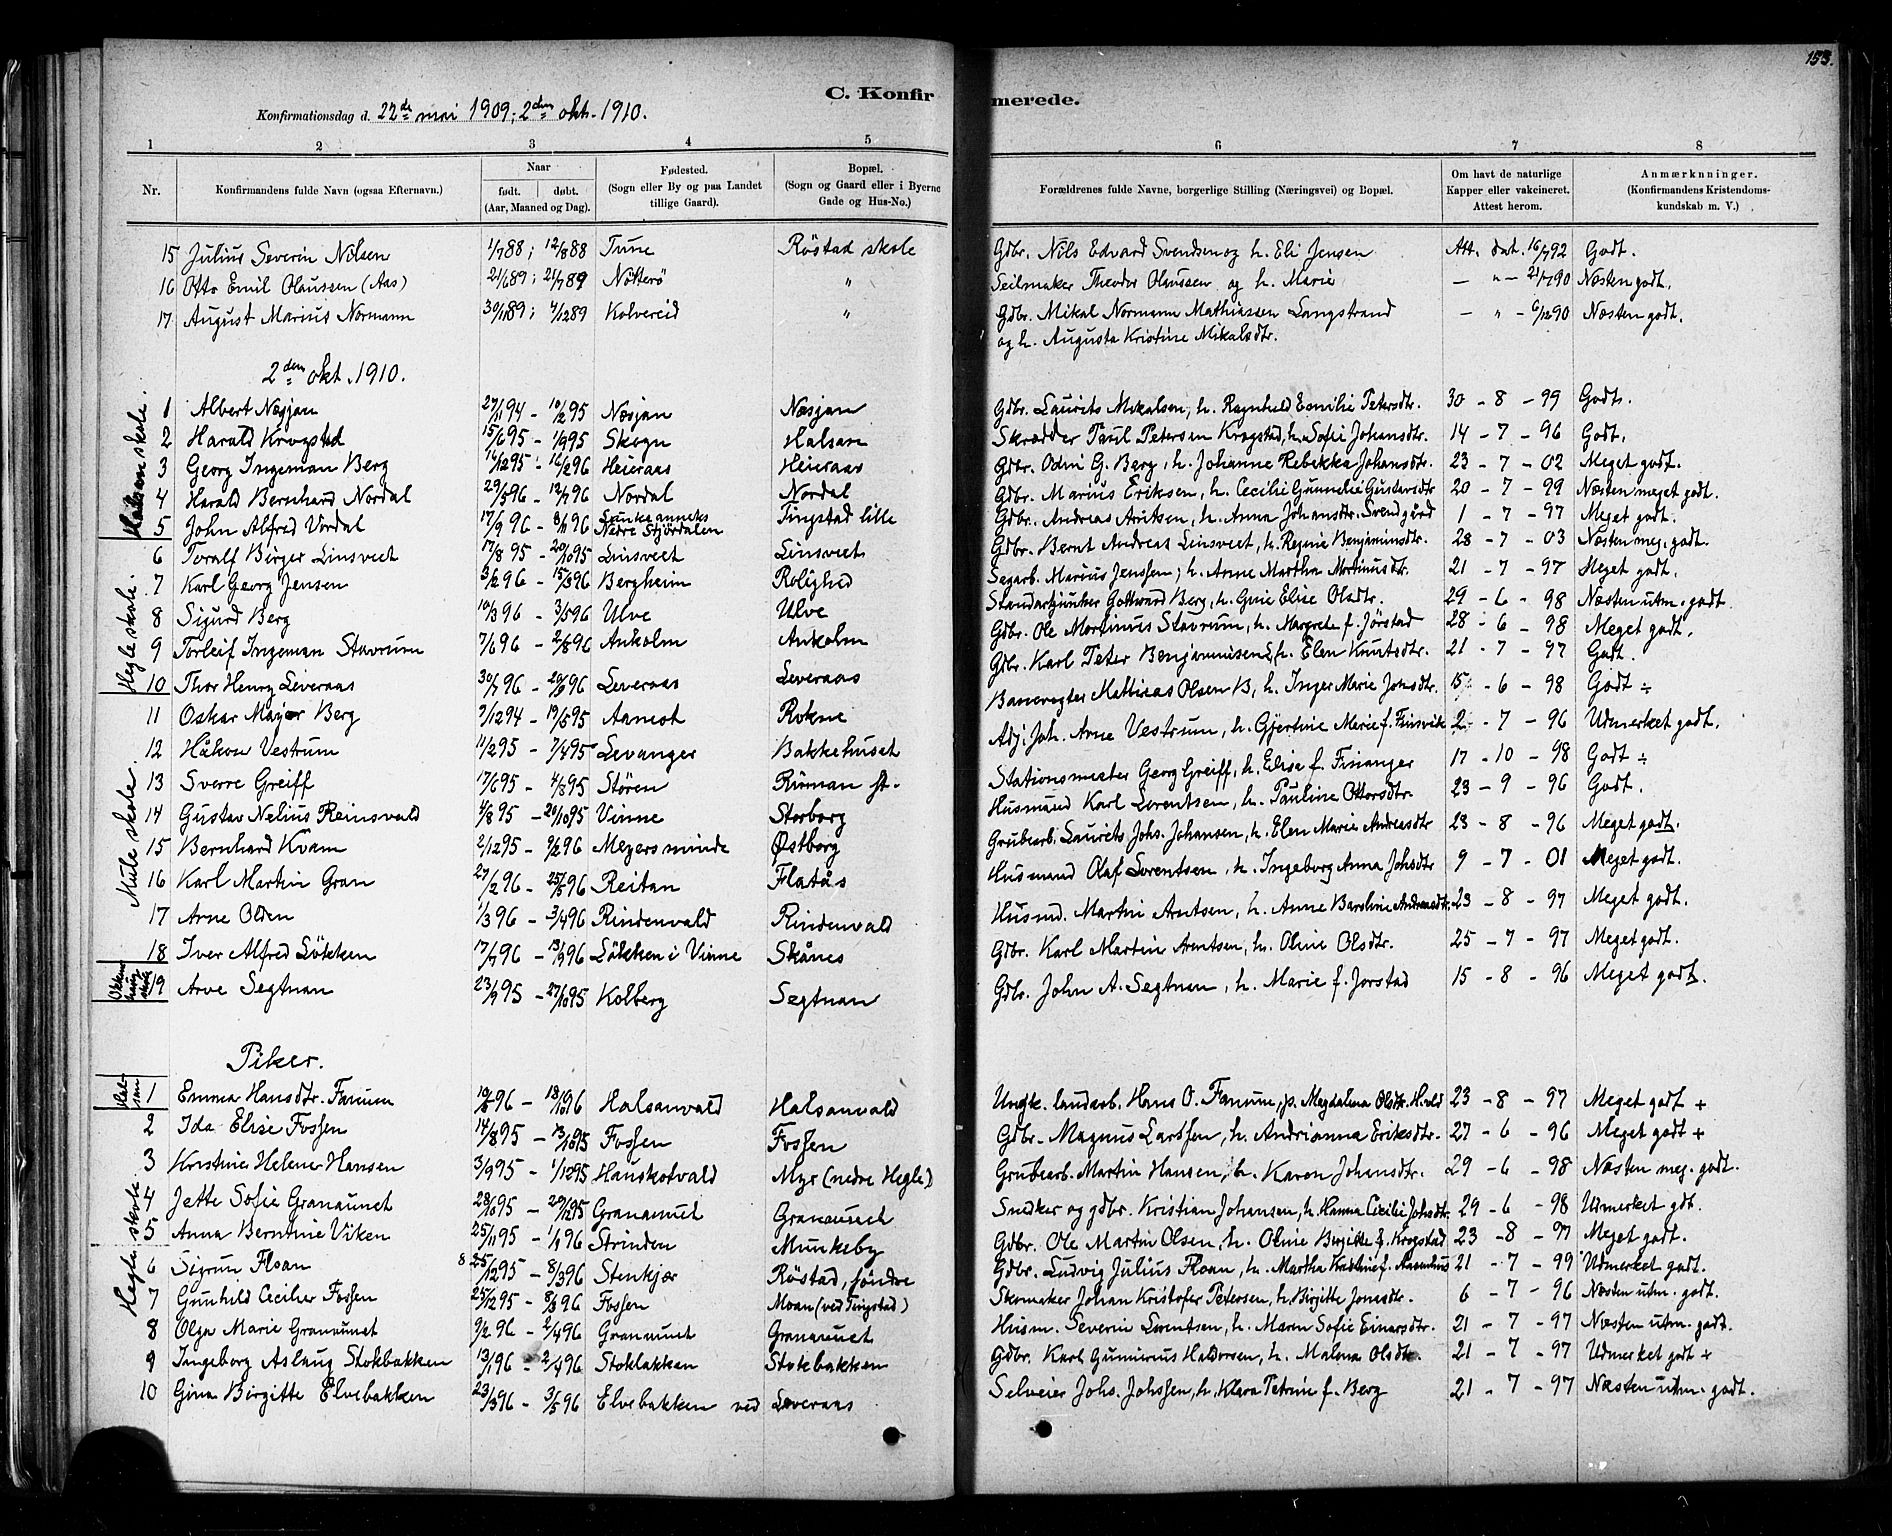 153.
C. Konfirmerede.
Konfirmationsdag d. 22de mai 1909; 2den okt. 1910.
1 2 3 4 5 6 7 8
Nr. Konfirmandens fulde Navn (ogsaa Efternavn). Naar født. døbt. (Aar, Maaned og Dag). Fødested. (Sogn eller By og paa Landet tillige Gaard). Bopæl. (Sogn og Gaard eller i Byerne Gade og Hus-No.) Forældrenes fulde Navne, borgerlige Stilling (Næringsvei) og Bopæl. Om havt de naturlige Kapper eller vakcineret. Attest herom. Anmærknninger. (Konfirmandens Kristendomskundskab m. V.)
15 Julius Severin Nilsen 1/7 88; 12/8 88 Tune Röstad skole Gdbr. Nils Edvard Svendsen og h. Eli Jensen Att. dat. 16/7 92 Godt.
16 Otto Emil Olaussen (Aas) 21/6 89; 21/7 89 Nötterö " Seilmaker Theodor Olaussen og h. Marie — " — 21/7 90 Næsten godt.
17 August Marius Normann 30/11 89; 4/12 89 Kolvereid " Gdbr. Mikal Normann Mathiassen Langstrand — " — 6/12 90 Næsten godt.
og h. Augusta Kristine Mikalsdtr.
2den okt. 1910.
Halsan skole.
1 Albert Næsjan 27/11 94 - 10/2 95 Næsjan Næsjan Gdbr. Laurits Mikalsen, h. Ragnhild Emilie Petersdtr. 30 - 8 - 99 Godt.
2 Harald Krogstad 15/6 95 - 1/9 95 Skogn Halsan Skrædder Paul Petersen Krogstad, h. Sofie Johansdtr. 14 - 7 - 96 Godt.
3 Georg Ingeman Berg 16/12 95 - 16/2 96 Heieraas Heieraas Gdbr. Odin G. Berg, h. Johanne Rebekka Johansdtr. 23 - 7 - 02 Meget godt.
4 Harald Bernhard Nordal 29/5 96 - 12/7 96 Nordal Nordal Gdbr. Marius Eriksen, h. Cecilie Gunnelie Gustavsdtr 20 - 7 - 99 Næsten meget godt.
5 John Alfred Vordal 17/9 96 - 8/11 96 Nedre Stjördalen Tingstad lille Gdbr. Andreas Arntsen, h. Anna Johansdtr. Svendgård 1 - 7 - 97 Meget godt.
Hegle skole.
6 Toralf Birger Linsveet 17/8 95 - 20/10 95 Linsveet Linsveet Gdbr. Bernt Andreas Linsveet, h. Regine Benjaminsdtr. 28 - 7 - 03 Næsten meg. godt.
7 Karl Georg Jensen 3/2 96 - 15/3 96 Bergheim Rolighed Sagarb. Marius Jenssen, h. Arne Martha Mortinusdtr. 21 - 7 - 97 Meget godt.
8 Sigurd Berg 10/3 96 - 3/5 96 Ulve Ulve Standartjunker Gottward Berg, h. Gurie Elise Olsdtr. 29 - 6 - 98 Næsten utm. godt
9 Torleif Ingeman Stavrum 7/6 96 - 2/8 96 Ankolm Ankolm Gdbr. Ole Martinus Stavrum, h. Margrete f. Jörstad 28 - 6 - 98 Meget godt.
10 Thor Henry Leveraas 30/7 96 - 20/9 96 Leveraas Leveraas Gdbr. Karl Peter Benjaminsen L., h. Elen Knutsdtr. 21 - 7 - 97 Godt.
Mule skole.
11 Oskar Mayor Berg 7/12 94 - 19/5 95 Aamot Rokne Banevogter Mathias Olsen B, h. Inger Marie Johsdtr. 15 - 6 - 98 Godt ÷
12 Håkon Vestrum 11/2 95 - 7/4 95 Levanger Bakkehuset Adj. Joh. Arne Vestrum, h. Gjertine Marie f. Finsvik 2 - 7 - 96 Udmerket godt.
13 Sverre Greiff 17/6 95 - 4/8 95 Stören Rinnan st. Stationsmester Georg Greiff, h. Elisa f. Finanger 17 - 10 - 98 Godt ÷
14 Gustav Nelius Reinsvald 4/8 95 - 20/10 95 Vinne Storborg Husmand Karl Lorentsen, h. Pauline Ottersdtr. 23 - 9 - 96 Godt.
15 Bernhard Kvam 2/12 95 - 9/2 96 Meyersminde Østborg Grubearb. Laurits Johs. Johansen, h. Elen Marie Andreasdtr 23 - 8 - 96 Meget godt.
16 Karl Martin Gran 27/2 96 - 25/5 96 Reitan Flatås Husmand Olaf Lorentsen, h. Ingeborg Anna Johsdtr 9 - 7 - 01 Meget godt.
17 Arne Olden 1/3 96 - 3/4 96 Rindenvald Rindenvald Husmd. Martin Arntsen, h. Anne Baroline Andreasdtr. 23 - 8 - 97 Meget godt.
18 Iver Alfred Lökken 17/7 96 - 13/9 96 Lökken i Vinne Skånes Gdbr. Karl Martin Arntsen, h. Oline Olsdtr. 25 - 7 - 97 Meget godt.
19 Arve Segtnan 23/9 95 - 27/10 95 Kolberg Segtnan Gdbr. John A. Segtnan, h. Marie f. Jorstad 15 - 8 - 96 Meget godt.
Piker.
Halsan
1 Emma Hansdtr. Fanum 19/8 96 - 18/10 96 Halsanvald Halsanvald Ungk. landarb. Hans O. Fanum, p. Magdalena Olsdtr. H.vald 23 - 8 - 97 Meget godt +
Hegle skole
2 Ida Elise Fossen 14/8 95 - 13/10 95 Fossen Fossen Gdbr. Magnus Larssen, h. Andrianna Eriksdtr. 27 - 6 - 96 Meget godt +
3 Kristine Helene Hansen 3/9 95 - 1/12 95 Hauskotvald Myr (nedre Hegle) Grubearb. Martin Hansen, h. Karen Johansdtr. 29 - 6 - 98 Næsten meg. godt.
4 Jette Sofie Granaunet 28/10 95 - 29/12 95 Granaunet Granaunet Snedker og gdbr. Kristian Johansen, h. Hanna Cecilie Johsdtr. 29 - 6 - 98 Udmerket gdt.
5 Anna Berntine Viken 25/11 95 - 1/1 96 Strinden Munkeby Gdbr. Ole Martin Olsen, h. Oline Birgitte f. Krogstad 23 - 8 - 97 Meget godt.
6 Sigrun Floan 25/12 95 - 8/3 96 Stenkjær Röstad, söndre Gdbr. Ludvig Julius Floan, h. Martha Kristine f. Aasenhus 21 - 7 - 99 Udmerket godt.
7 Gunhild Cecilie Fossen 25/12 95 - 8/3 96 Fossen Moan (ved Tingstad) Skomaker Johan Kristofer Petersen, h. Birgitte Jonasdtr. 6 - 7 - 96 Næsten utm. godt.
8 Olga Marie Granaunet 9/2 96 - 2/4 96 Granaunet Granaunet Husm. Severin Lorentsen, h. Maren Sofie Einarsdtr. 21 - 7 - 97 Næsten utm. godt.
9 Ingeborg Aslaug Stokbakken 13/1 96 - 2/4 96 Stokbakken Stokbakken Gdbr. Karl Gunnerius Haldorsen, h. Malena Olsdtr. 21 - 7 - 97 Udmerket godt +
10 Gina Birgitte Elvebakken 23/3 96 - 3/5 96 Elvebakken ved Leveraas Selveier Johs. Johssen, h. Klara Petrine f. Berg 21 - 7 - 97 Næsten utm. godt.